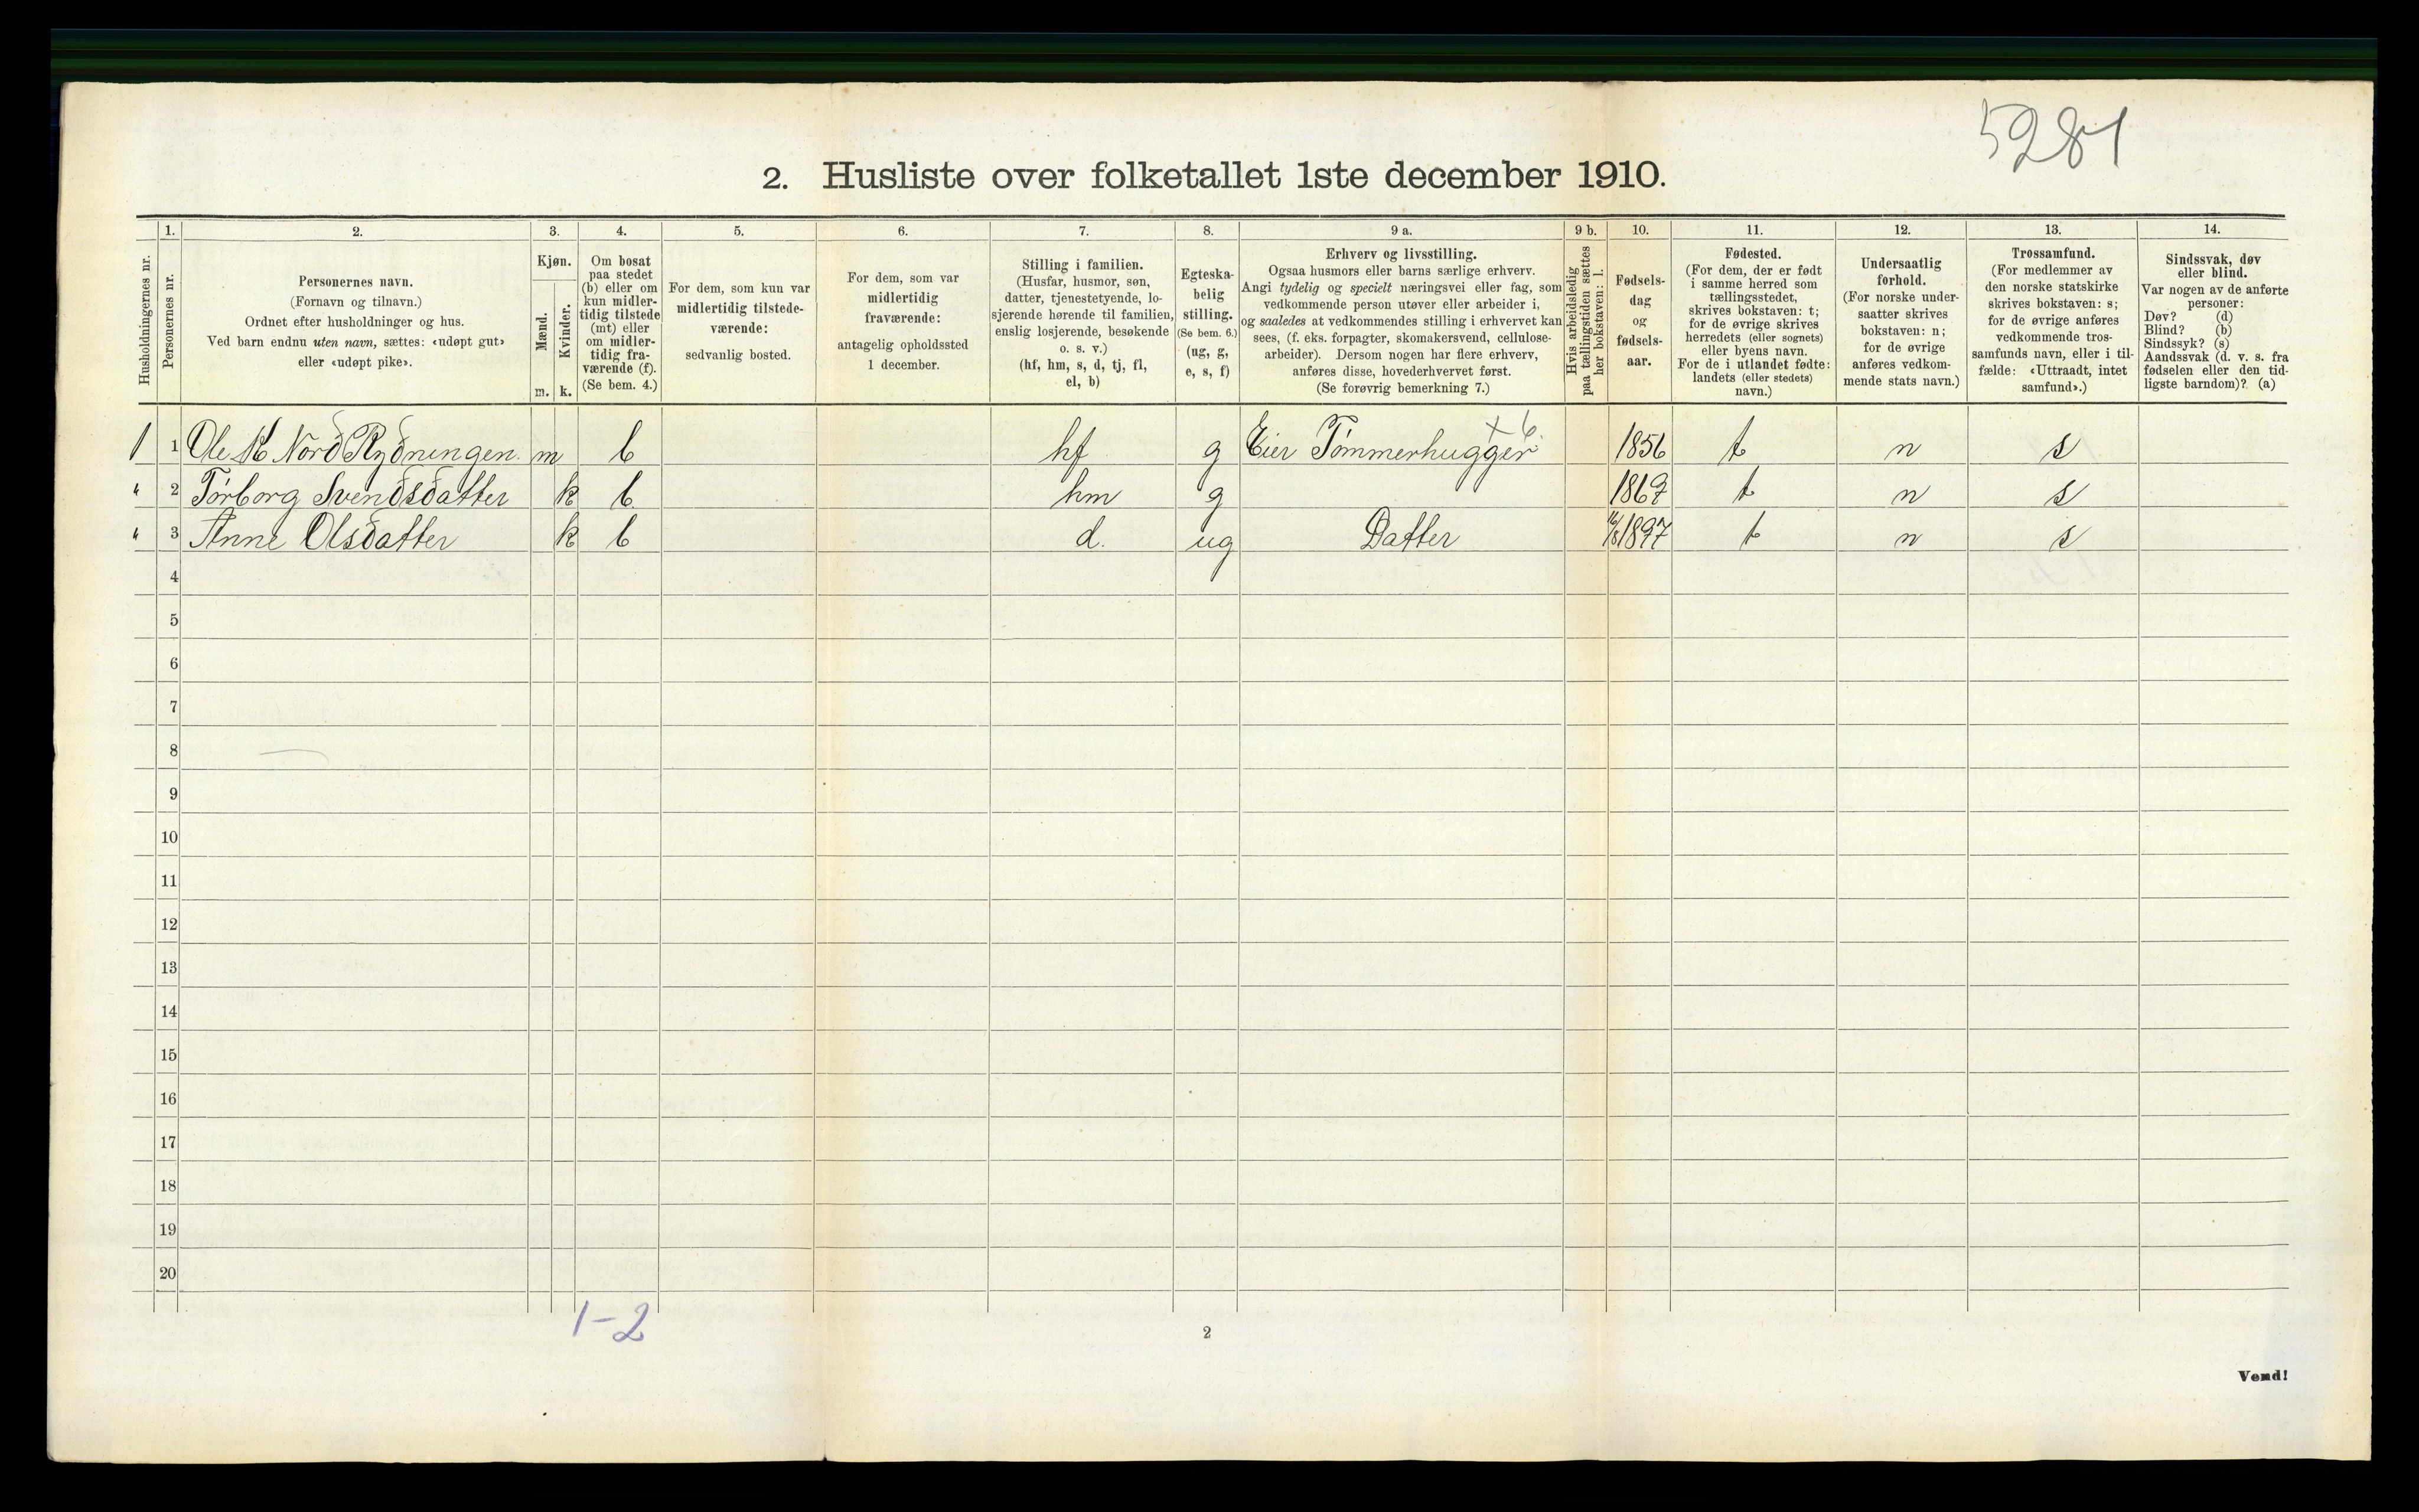 5281
2. Husliste over folketallet 1ste december 1910.
Husholdningernes nr.
1.
Personernes nr.
2.
Personernes navn.
(Fornavn og tilnavn.)
Ordnet efter husholdninger og hus.
Ved barn endnu uten navn, sættes: «udøpt gut»
eller «udøpt pike».
3.
Kjøn.
Mænd.
Kvinder.
m. k.
4.
Om bosat
paa stedet
(b) eller om
kun midler-
tidig tilstede
(mt) eller
om midler-
tidig fra-
værende (f).
(Se bem. 4.)
5.
For dem, som kun var
midlertidig tilstede-
værende:
sedvanlig bosted.
6.
For dem, som var
midlertidig
fraværende:
antagelig opholdssted
1 december.
7.
Stilling i familien.
(Husfar, husmor, søn,
datter, tjenestetyende, lo-
sjerende hørende til familien,
enslig losjerende, besøkende
o. s. v.)
(hf, hm, s, d, tj, fl,
el, b)
8.
Egteska-
belig
stilling.
(Se bem. 6.)
(ug, g,
e, s, f)
9 a.
Erhverv og livsstilling.
Ogsaa husmors eller barns særlige erhverv.
Angi tydelig og specielt næringsvei eller fag, som
vedkommende person utøver eller arbeider i,
og saaledes at vedkommendes stilling i erhvervet kan
sees, (f. eks. forpagter, skomakersvend, cellulose-
arbeider). Dersom nogen har flere erhverv,
anføres disse, hovederhvervet først.
(Se forøvrig bemerkning 7.)
9 b.
Hvis arbeidsledig
paa tællingstiden sættes
her bokstaven: l.
10.
Fødsels-
dag
og
fødsels-
aar.
11.
Fødested.
(For dem, der er født
i samme herred som
tællingsstedet,
skrives bokstaven: t;
for de øvrige skrives
herredets (eller sognets)
eller byens navn.
For de i utlandet fødte:
landets (eller stedets)
navn.)
12.
Undersaatlig
forhold.
(For norske under-
saatter skrives
bokstaven: n;
for de øvrige
anføres vedkom-
mende stats navn.)
13.
Trossamfund.
(For medlemmer av
den norske statskirke
skrives bokstaven: s;
for de øvrige anføres
vedkommende tros-
samfunds navn, eller i til-
fælde: «Uttraadt, intet
samfund».)
14.
Sindssvak, døv
eller blind.
Var nogen av de anførte
personer:
Døv? (d)
Blind? (b)
Sindssyk? (s)
Aandssvak (d. v. s. fra
fødselen eller den tid-
ligste barndom)? (a)
x 6.
1 1 Ole K Nord Rydningen. m b hf g Eier Tømmerhugger 1856 t n s
" 2 Torborg Svendsdatter k b hm g 1867 t n s
" 3 Anne Olsdatter k b d. ug Datter 1897 t n s
4
5
6
7
8
9
10
11
12
13
14
15
16
17
18
19
20
1-2
2
Vend!